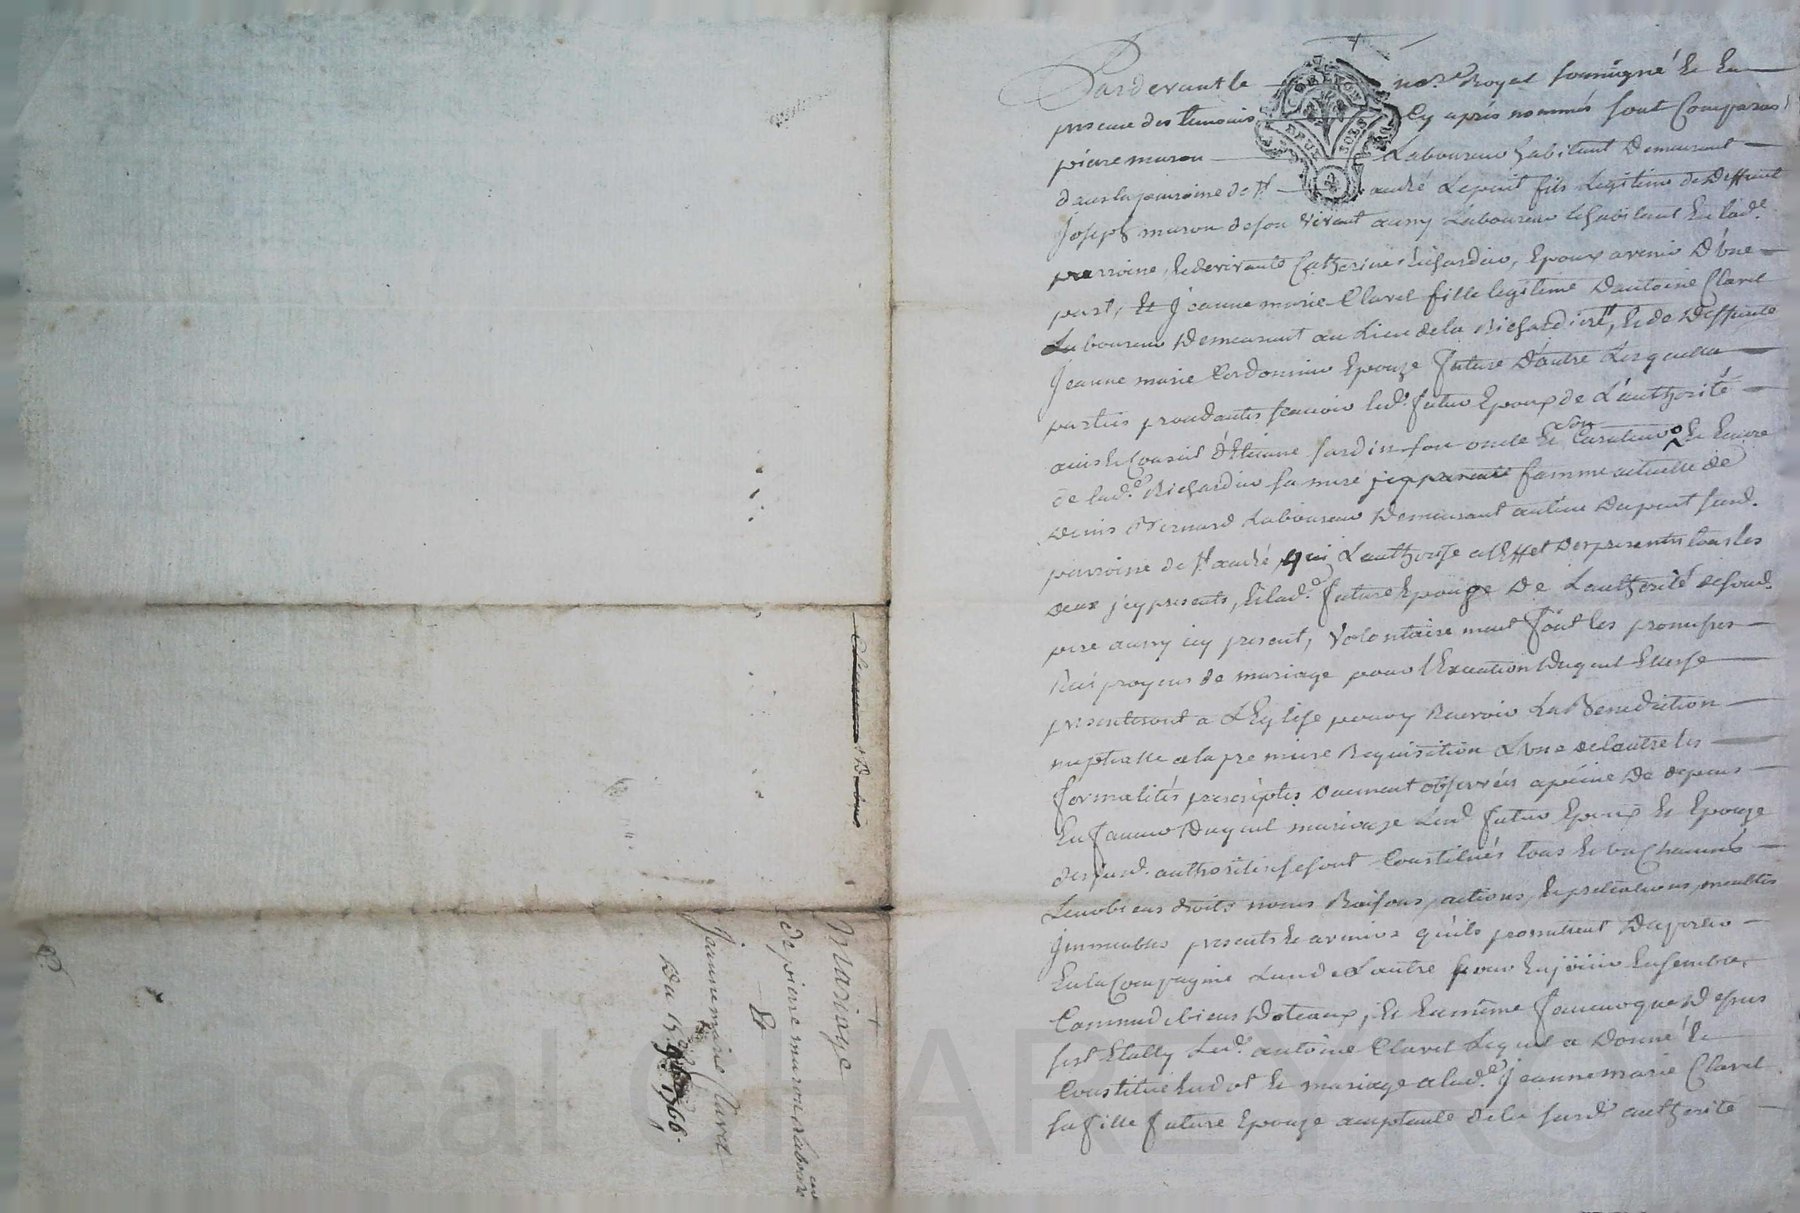 Pardevant le no.re Royal soussigné Et En
presence des temoins Cy aprés nommés sont Comparus
pierre muron Laboureur habitant Demeurant
dans la parroisse de St andré Lepuit fils Legitime de Deffunt
Joseph muron de son vivant aussy Laboureur Et habitant En lad.e
parroisse, Et de vivante Catherine Richardier, Epoux avenir D'une
part, Et Jeanne marie Clavel fille legitime D'antoine Clavel
Laboureur Demeurant au Lieu de la Richardiere, Et de Deffunte
Jeanne marie Cordonnier Epouze future D'autre Lesquelles
parties procedantes scauoir led.t futur Epoux de L'authorité
auis Et Conseil d'Etienne Jardin son oncle Et son Curateur Et Encore
de lad.e Richardier sa mere femme actuelle de
Denis Bernard Laboureur Demeurant au lieu Dupont surd.
parroisse de St andré, qui L'authorise a l'Effet Des presentes tous les
deux jcy presents, Et lad.e future Epouze De L'authorité de sond.
pere aussy icy present, Volontairement font les promesses
Reciproques de mariage pour l'Execution Duquel Et se
presenteront a L'Eglise pour y Recevoir La Benediction
nuptialle a la premiere Requisition L'une de l'autre les
formalités prescriptes Duement observées a peine De depens
En faueur Duquel mariage Led. futur Epoux Et Epouze
desjusd. authorités se sont Constitués tous Et un Chacuns
Leurs biens droits noms Raisons, actions, Et pretentions, meubles
Jmmeubles presents Et avenir qu'ils promettent Daporter
En la Compagnie L'un de L'autre pour En joüir Ensemble
Comme de biens Doteaux, Et En même faueur que Dessus
s'est Etably Led.t antoine Clavel Lequel a Donné Et
Constitué En dot Et mariage a lad.e Jeanne marie Clavel
sa fille future Epouze acceptante de la susd.e authorité
CONTROL
DEUX SOLS
Mariage
de pierre muron Laboureur
Et
Jeanne marie Clavel
Du 1766.
Pascal CHAREYRON